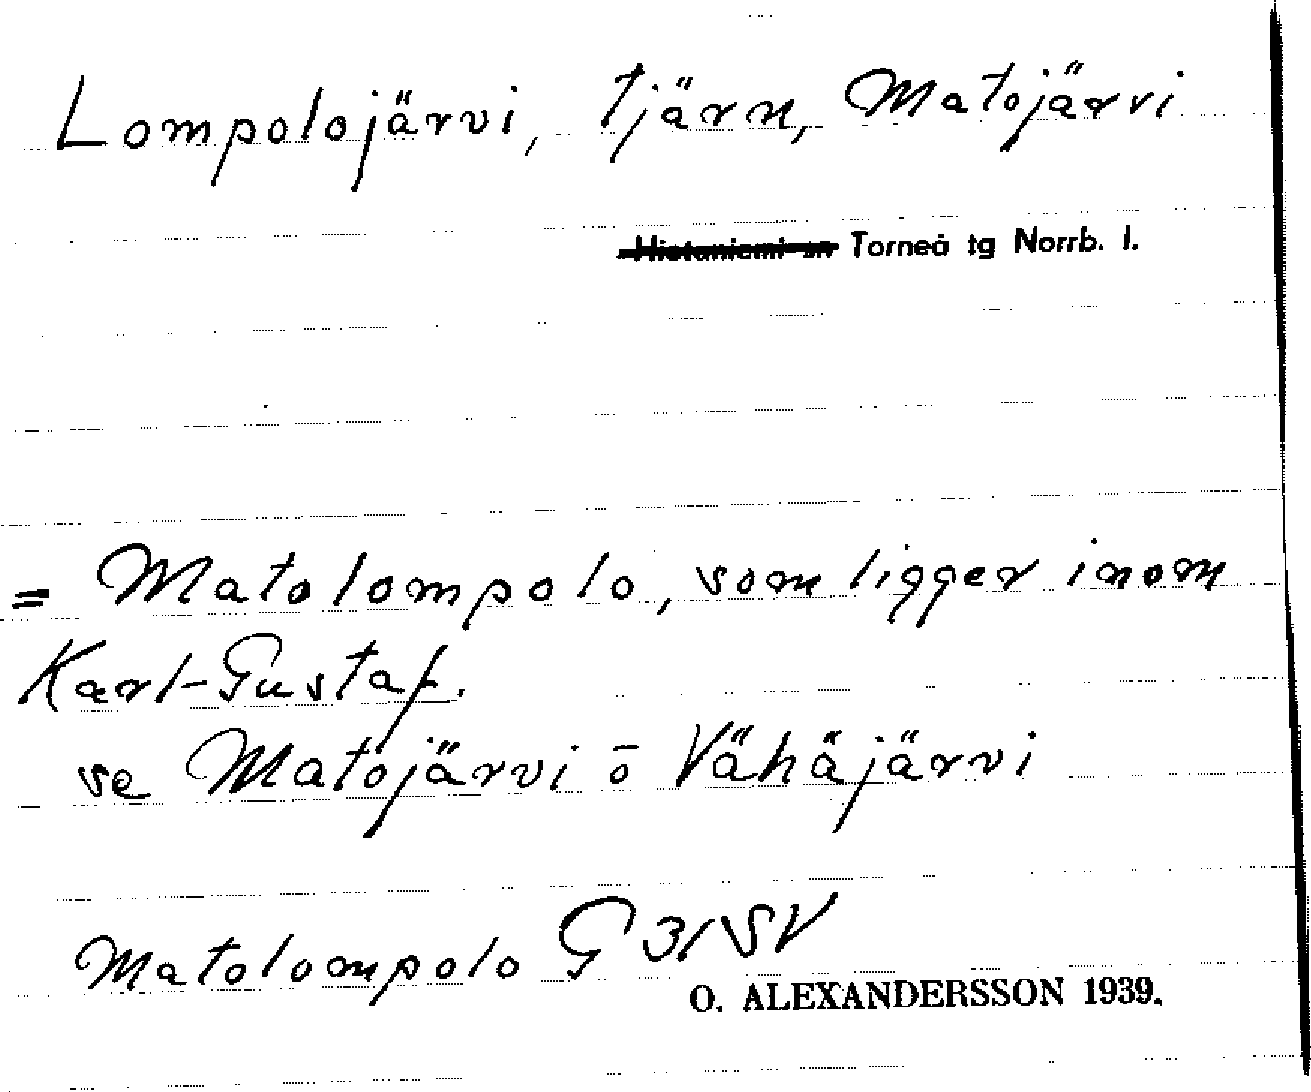 Lompolojärvi, tjärn, Matojärvi
Hietaniemi sn Torneå tg Norrb. l.
= Matolompolo, som ligger inom
Karl-Gustaf.
se Matojärvi o Vähäjärvi
Matolompolo G 31 SV
O. ALEXANDERSSON 1939.